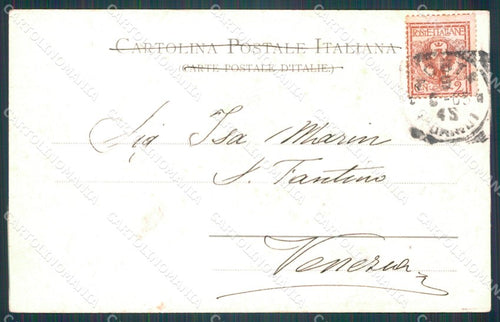 CARTOLINA POSTALE ITALIANA
(CARTE POSTALE D'ITALIE.)
POSTE ITALIANE
2
45
Sig Isa Marin
S. Fantino
Venezia
CARTOLINOMANIA